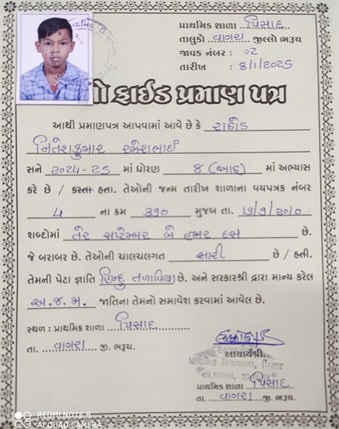 પ્રાથમિક શાળા પિસાદ
તાલુકો વાગરા જીલ્લો ભરૂચ
જાવક નંબર : ૦૨
તારીખ : ૪/૧/૨૦૨૫
બોનોફાઈડ પ્રમાણ પત્ર
આથી પ્રમાણપત્ર આપવામાં આવે છે કે રાઠોડ
નિતેશકુમાર રમેશભાઈ
સને ૨૦૨૪-૨૫ માં ધોરણ ૮ (આઠ) માં અભ્યાસ
કરે છે / કરતા હતા. તેઓની જન્મ તારીખ શાળાના વયપત્રક નંબર
૫ ના ક્રમ ૩૧૦ મુજબ તા.
શબ્દોમાં તેર સપ્ટેમ્બર બે હજાર દસ છે.
જે બરાબર છે. તેઓની ચાલચલગત સારી છે / હતી.
તેમની પેટા જ્ઞાતિ હિન્દુ તળાવિયા છે. અને સરકારશ્રી દ્વારા માન્ય કરેલ
અ.જ.જા. જાતિના તેમનો સમાવેશ કરવામાં આવેલ છે.
સ્થળ : પ્રાથમિક શાળા પિસાદ
તા. વાગરા જી. ભરૂચ.
આચાર્યશ્રી.
પ્રાથમિક શાળા પિસાદ
તા. વાગરા જી. ભરૂચ.
REDMI NOTE 8
AI QUAD CAMERA